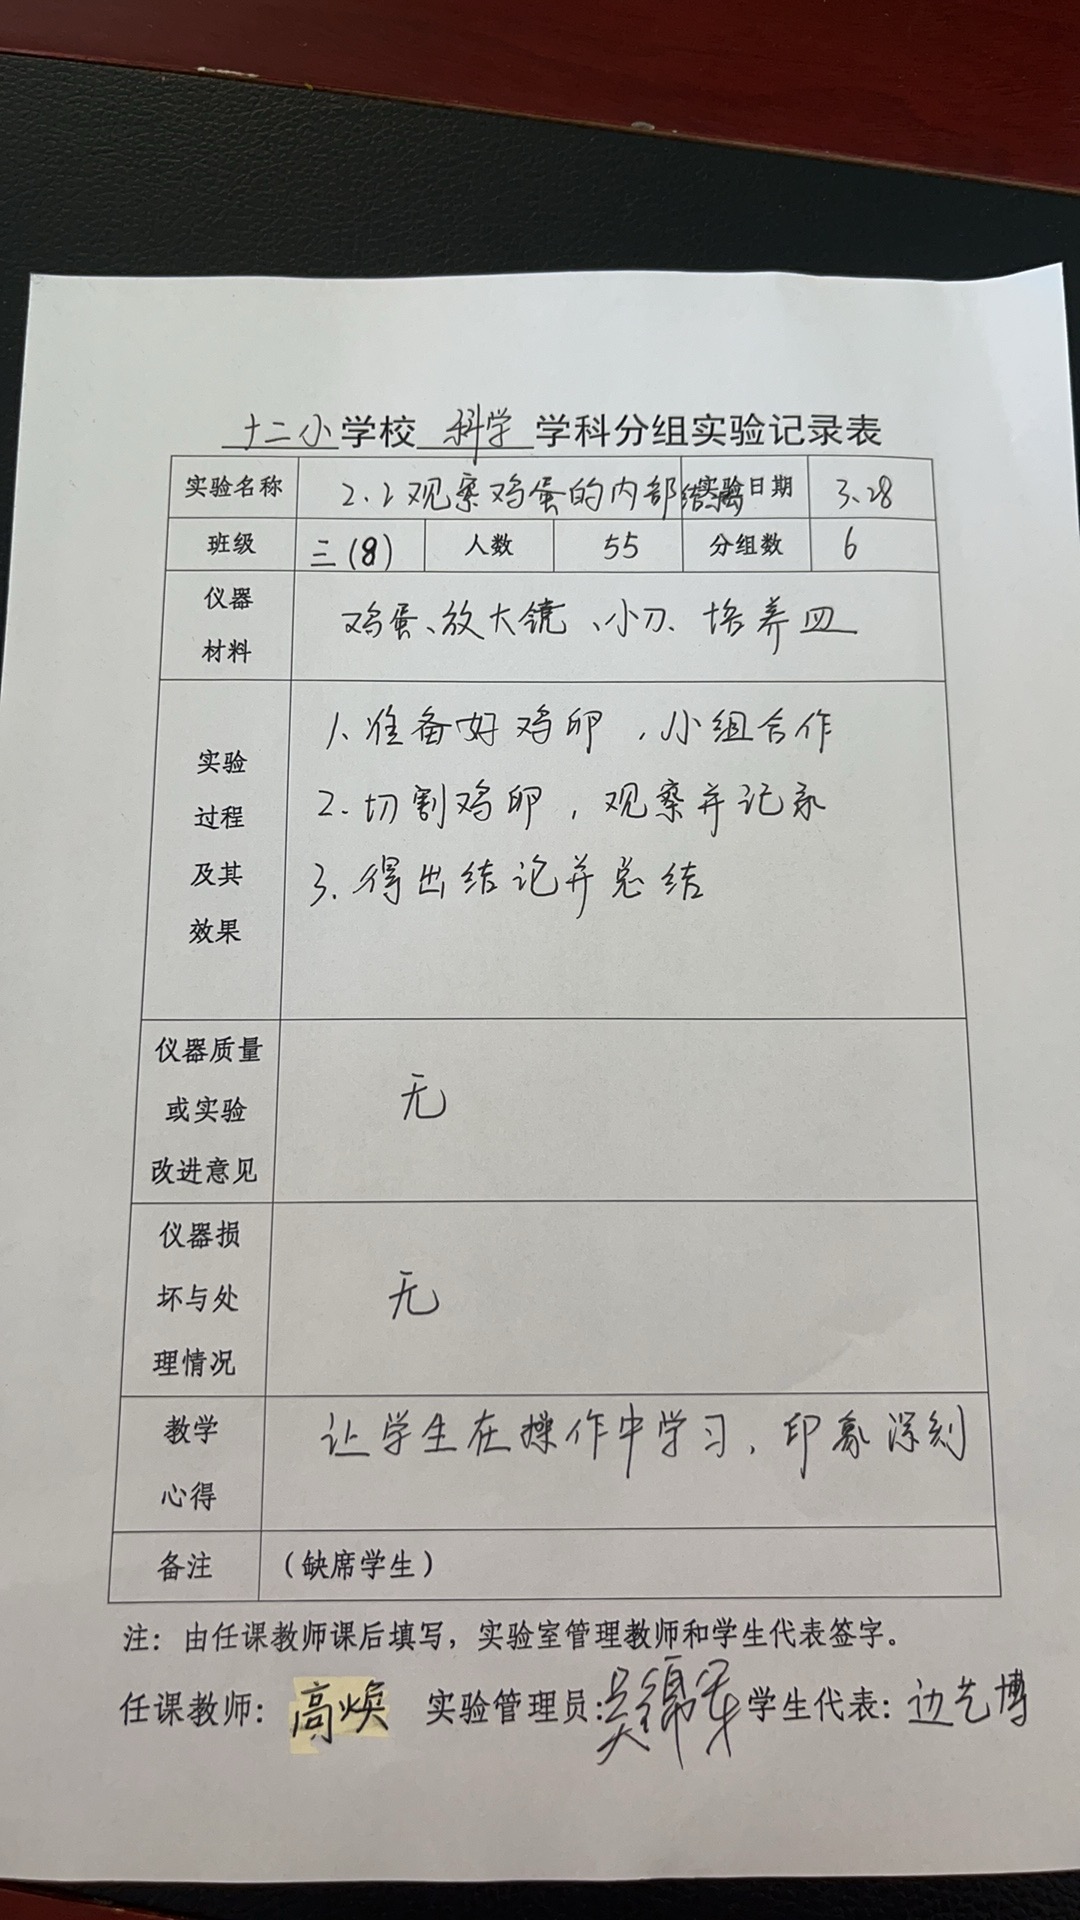 十二小学校 科学 学科分组实验记录表
实验名称 2.2观察鸡蛋的内部结构 实验日期 3.28
班级 三(8) 人数 55 分组数 6
仪器
材料
鸡蛋、放大镜、小刀、培养皿
实验
过程
及其
效果
1、准备好鸡卵,小组合作
2、切割鸡卵,观察并记录
3、得出结论并总结
仪器质量
或实验
改进意见
无
仪器损
坏与处
理情况
无
教学
心得
让学生在操作中学习,印象深刻
备注 (缺席学生)
注:由任课教师课后填写,实验室管理教师和学生代表签字。
任课教师:高焕 实验管理员:吴锦 学生代表:边艺博